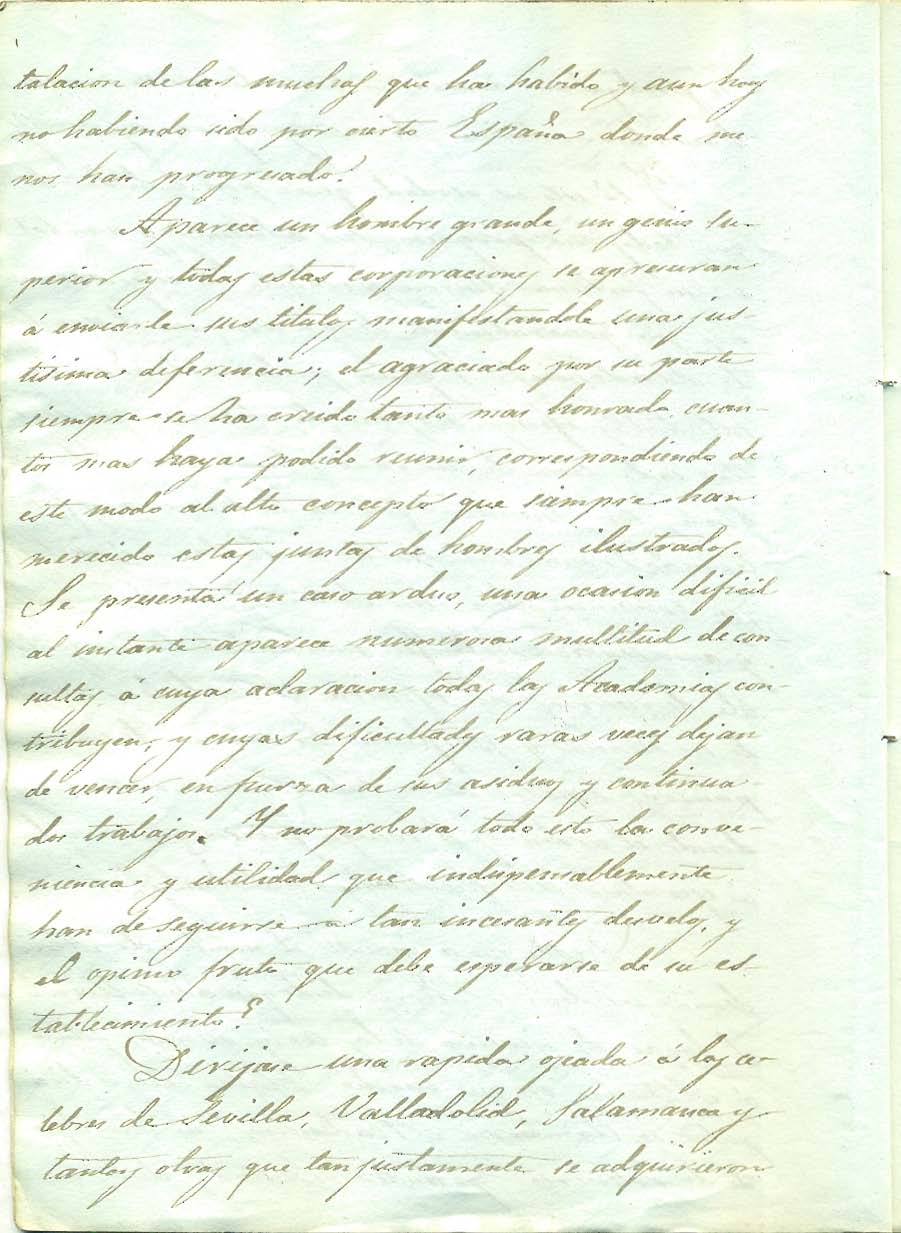 talacion de las muchas que ha habido y aun hoy
no habiendo sido por cierto España donde me-
nos han progresado.
Aparece un hombre grande, un genio su-
perior y todas estas corporaciones se apresuran
á enviarle sus titulos manifestandole una jus-
tisima deferencia; el agraciado por su parte
siempre se ha creido tanto mas honrado cuan-
tos mas haya podido reunir, correspondiendo de
este modo al alto concepto que siempre han
merecido estas juntas de hombres ilustrados.
Se presenta un caso arduo, una ocasion dificil
al instante aparece numerosa multitud de con-
sultas á cuya aclaracion todas las Academias con-
tribuyen, y cuyas dificultades raras veces dejan
de vencer, en fuerza de sus asiduos y continua-
dos trabajos. Y no probará todo esto la conve-
niencia y utilidad que indispensablemente
han de seguirse á tan incesantes desvelos, y
el opimo fruto que debe esperarse de su es-
tablecimiento?
Dirijase una rapida ojeada á las ce-
lebres de Sevilla, Valladolid, Salamanca y
tantas otras que tan justamente se adquirieron